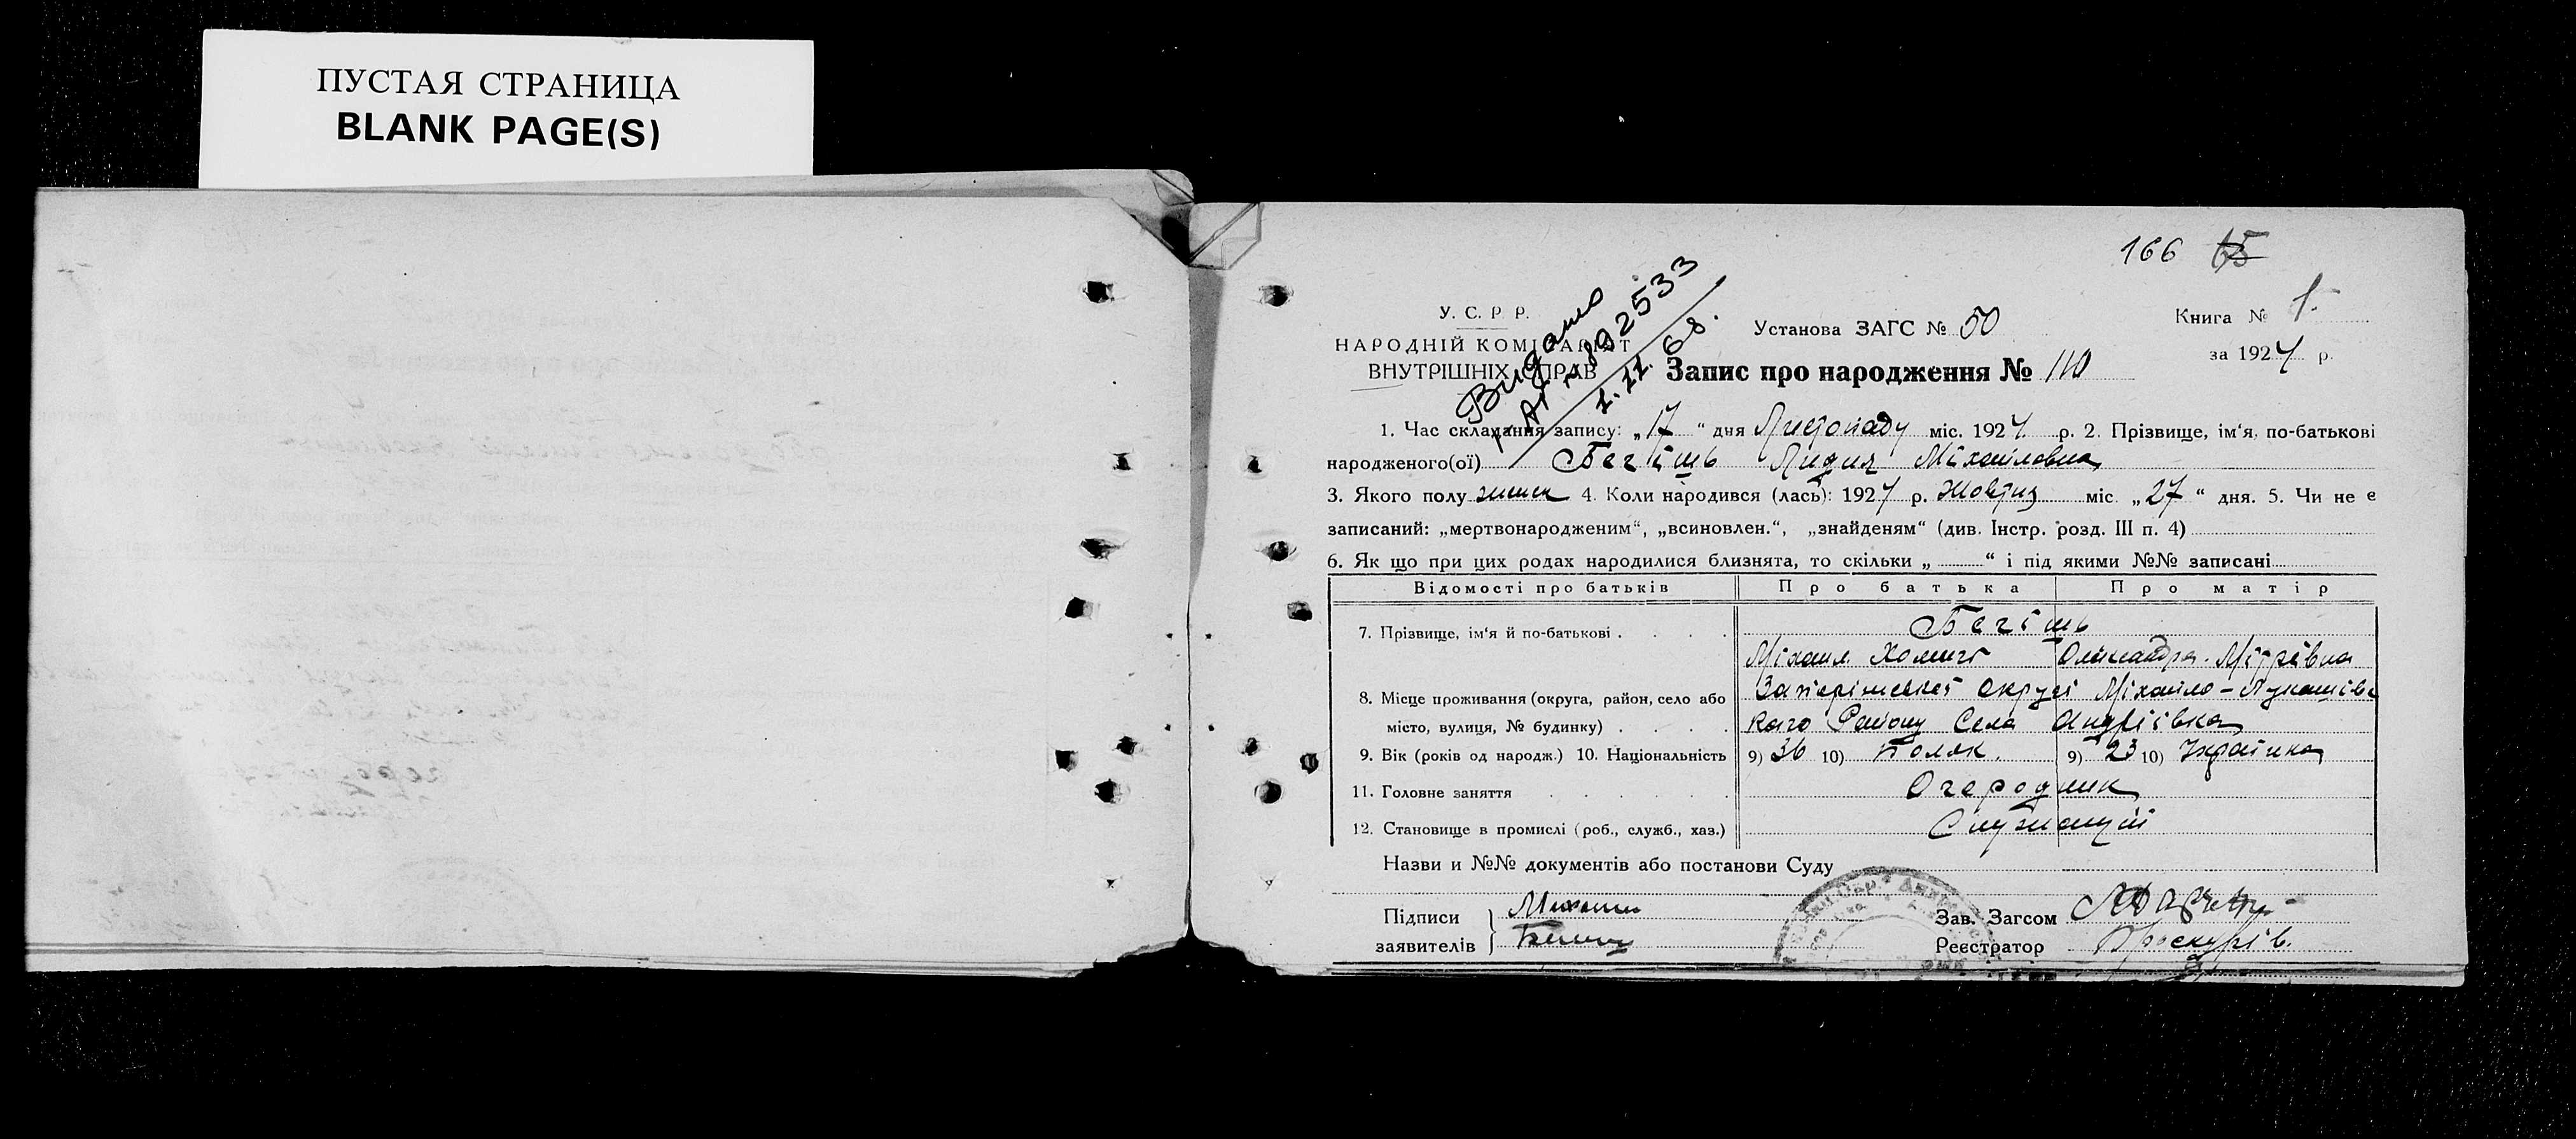 ПУСТАЯ СТРАНИЦА
BLANK PAGE(S)
166 65
У. С. Р. Р.
НАРОДНІЙ КОМІСАРІЯТ
ВНУТРІШНІХ СПРАВ
Видано
892533
1.11.68.
Установа ЗАГС № 50
Книга № 1.
за 1924 р.
Запис про народження № 110
1. Час складання запису: „17“ дня Листопаду міс. 1924 р. 2. Прізвище, ім‘я, по-батькові
народженого(ої) Бегішь Лидия Міхайловна
3. Якого полу женск 4. Коли народився (лась): 1924 р. Жовтня міс. „27“ дня. 5. Чи не є
записаний: „мертвонародженим“, „всиновлен.“, „знайденям“ (див. Інстр. розд. III п. 4)
6. Як що при цих родах народилися близнята, то скільки „ “ і під якими №№ записані
Відомості про батьків Про батька Про матір
7. Прізвище, ім‘я й по-батькові Бегішь
Міхаил Хомич Олександра Мітрівна
8. Місце проживання (округа, район, село або Запорізької округи Міхайло-Лукашівс
місто, вулиця, № будинку) кого Району Села Андріївка
9. Вік (років од народж.) 10. Національність 9) 36 10) Поляк. 9) 23 10) Українка
11. Головне заняття Огородник
12. Становище в промислі (роб., служб., хаз.) Служащий
Назви и №№ документів або постанови Суду
Підписи Михаил Зав. Загсом
заявителів Бегиш Реєстратор Проскурів.